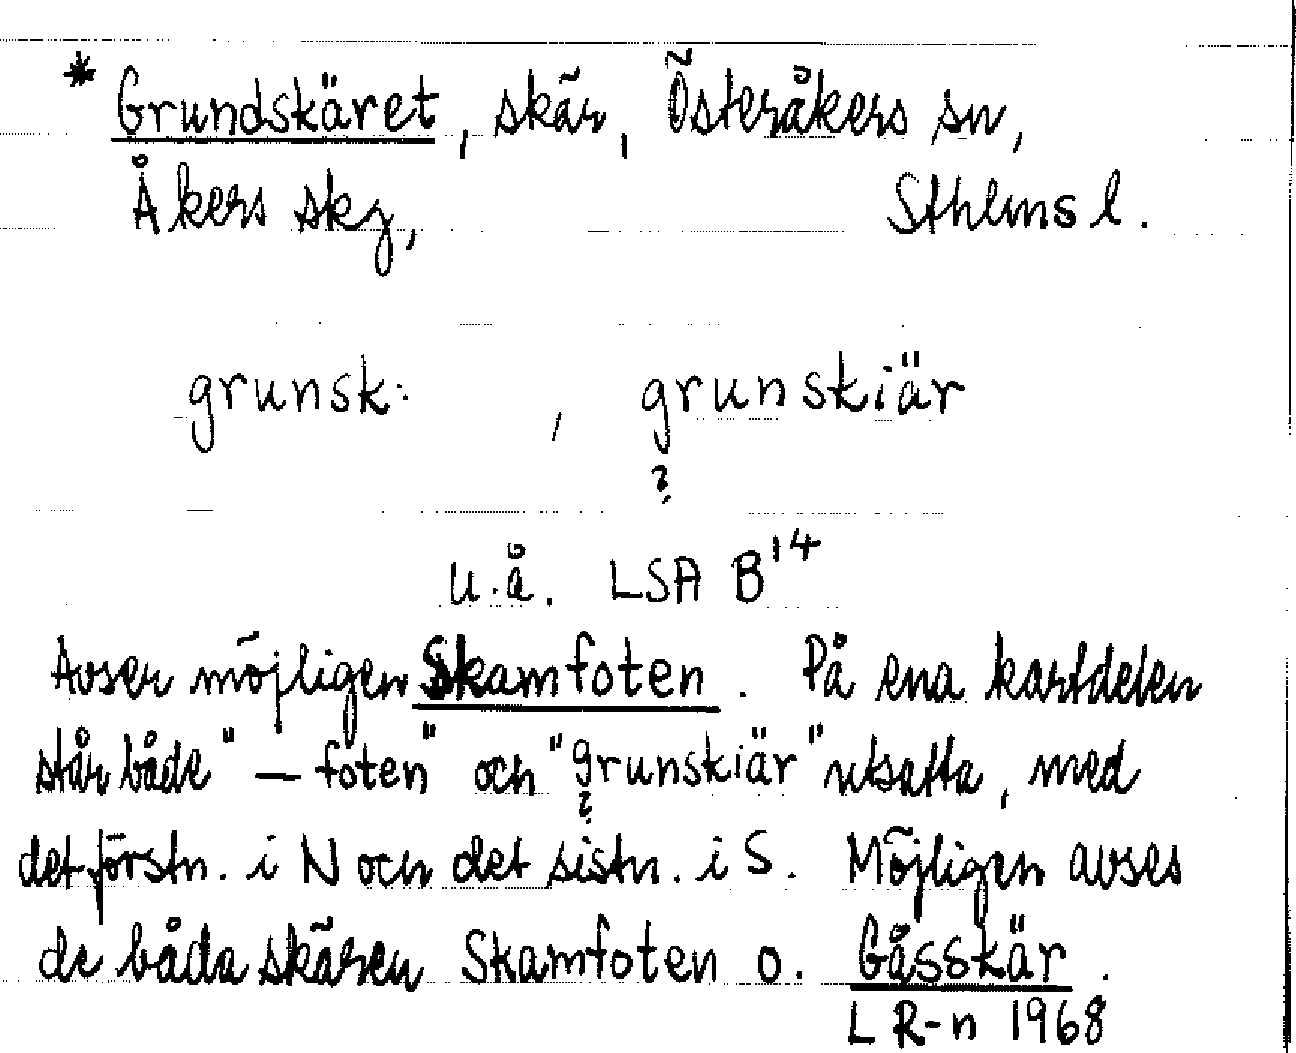 * Grundskäret, skär, Österåkers sn,
Åkers skg, Sthlms l.
grunsk: , grunskiär
?
u.å. LSA B14
Avser möjligen Skamfoten. På ena kartdelen
står både "— foten" och "grunskiär" utsatta, med
?
det förstn. i N och det sistn. i S. Möjligen avses
de båda skären Skamfoten o. Gåsskär.
L R-n 1968